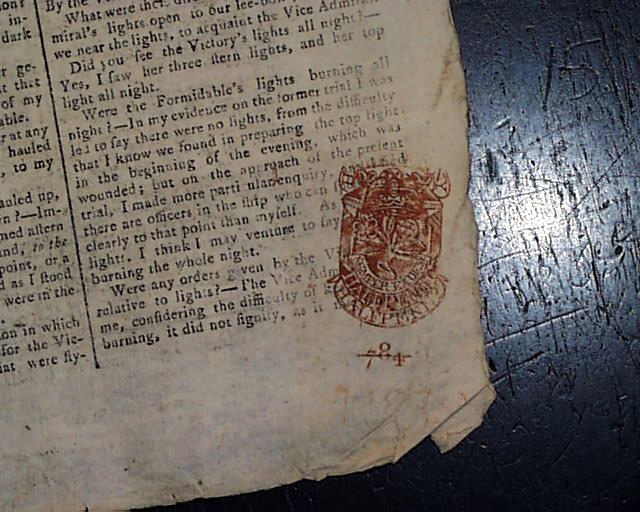 in-
dark
er ge-
at that
of my
able.
r at any
hauled
, to my
auled up,
n?—Im-
ned aſtern
und, to the
point, or a
d as I ſtood
were in the
on in which
for the Vic-
iat were fly-
By the
What were the
miral's lights open to our lee-bo
we near the lights, to acquaint the Vice Admi
Did you ſee the Victory's lights all night?—
Yes, I ſaw her three ſtern lights, and her top
light all night.
Were the Formidable's lights burning all
night?—In my evidence on the former trial I was
led to ſay there were no lights, from the difficulty
that I know we found in preparing the top light.
in the beginning of the evening, which was
wounded; but on the approach of the preſent
trial, I made more parti ular enquiry,
there are officers in the ſhip who can
clearly to that point than myſelf. As
lights. I think I may venture to ſay
burning the whole night.
Were any orders g ven by the V
relative to lights?—The Vice Adm
me, conſidering the difficulty of k
burning, it did not ſignify, as it
HALFPENNY
784